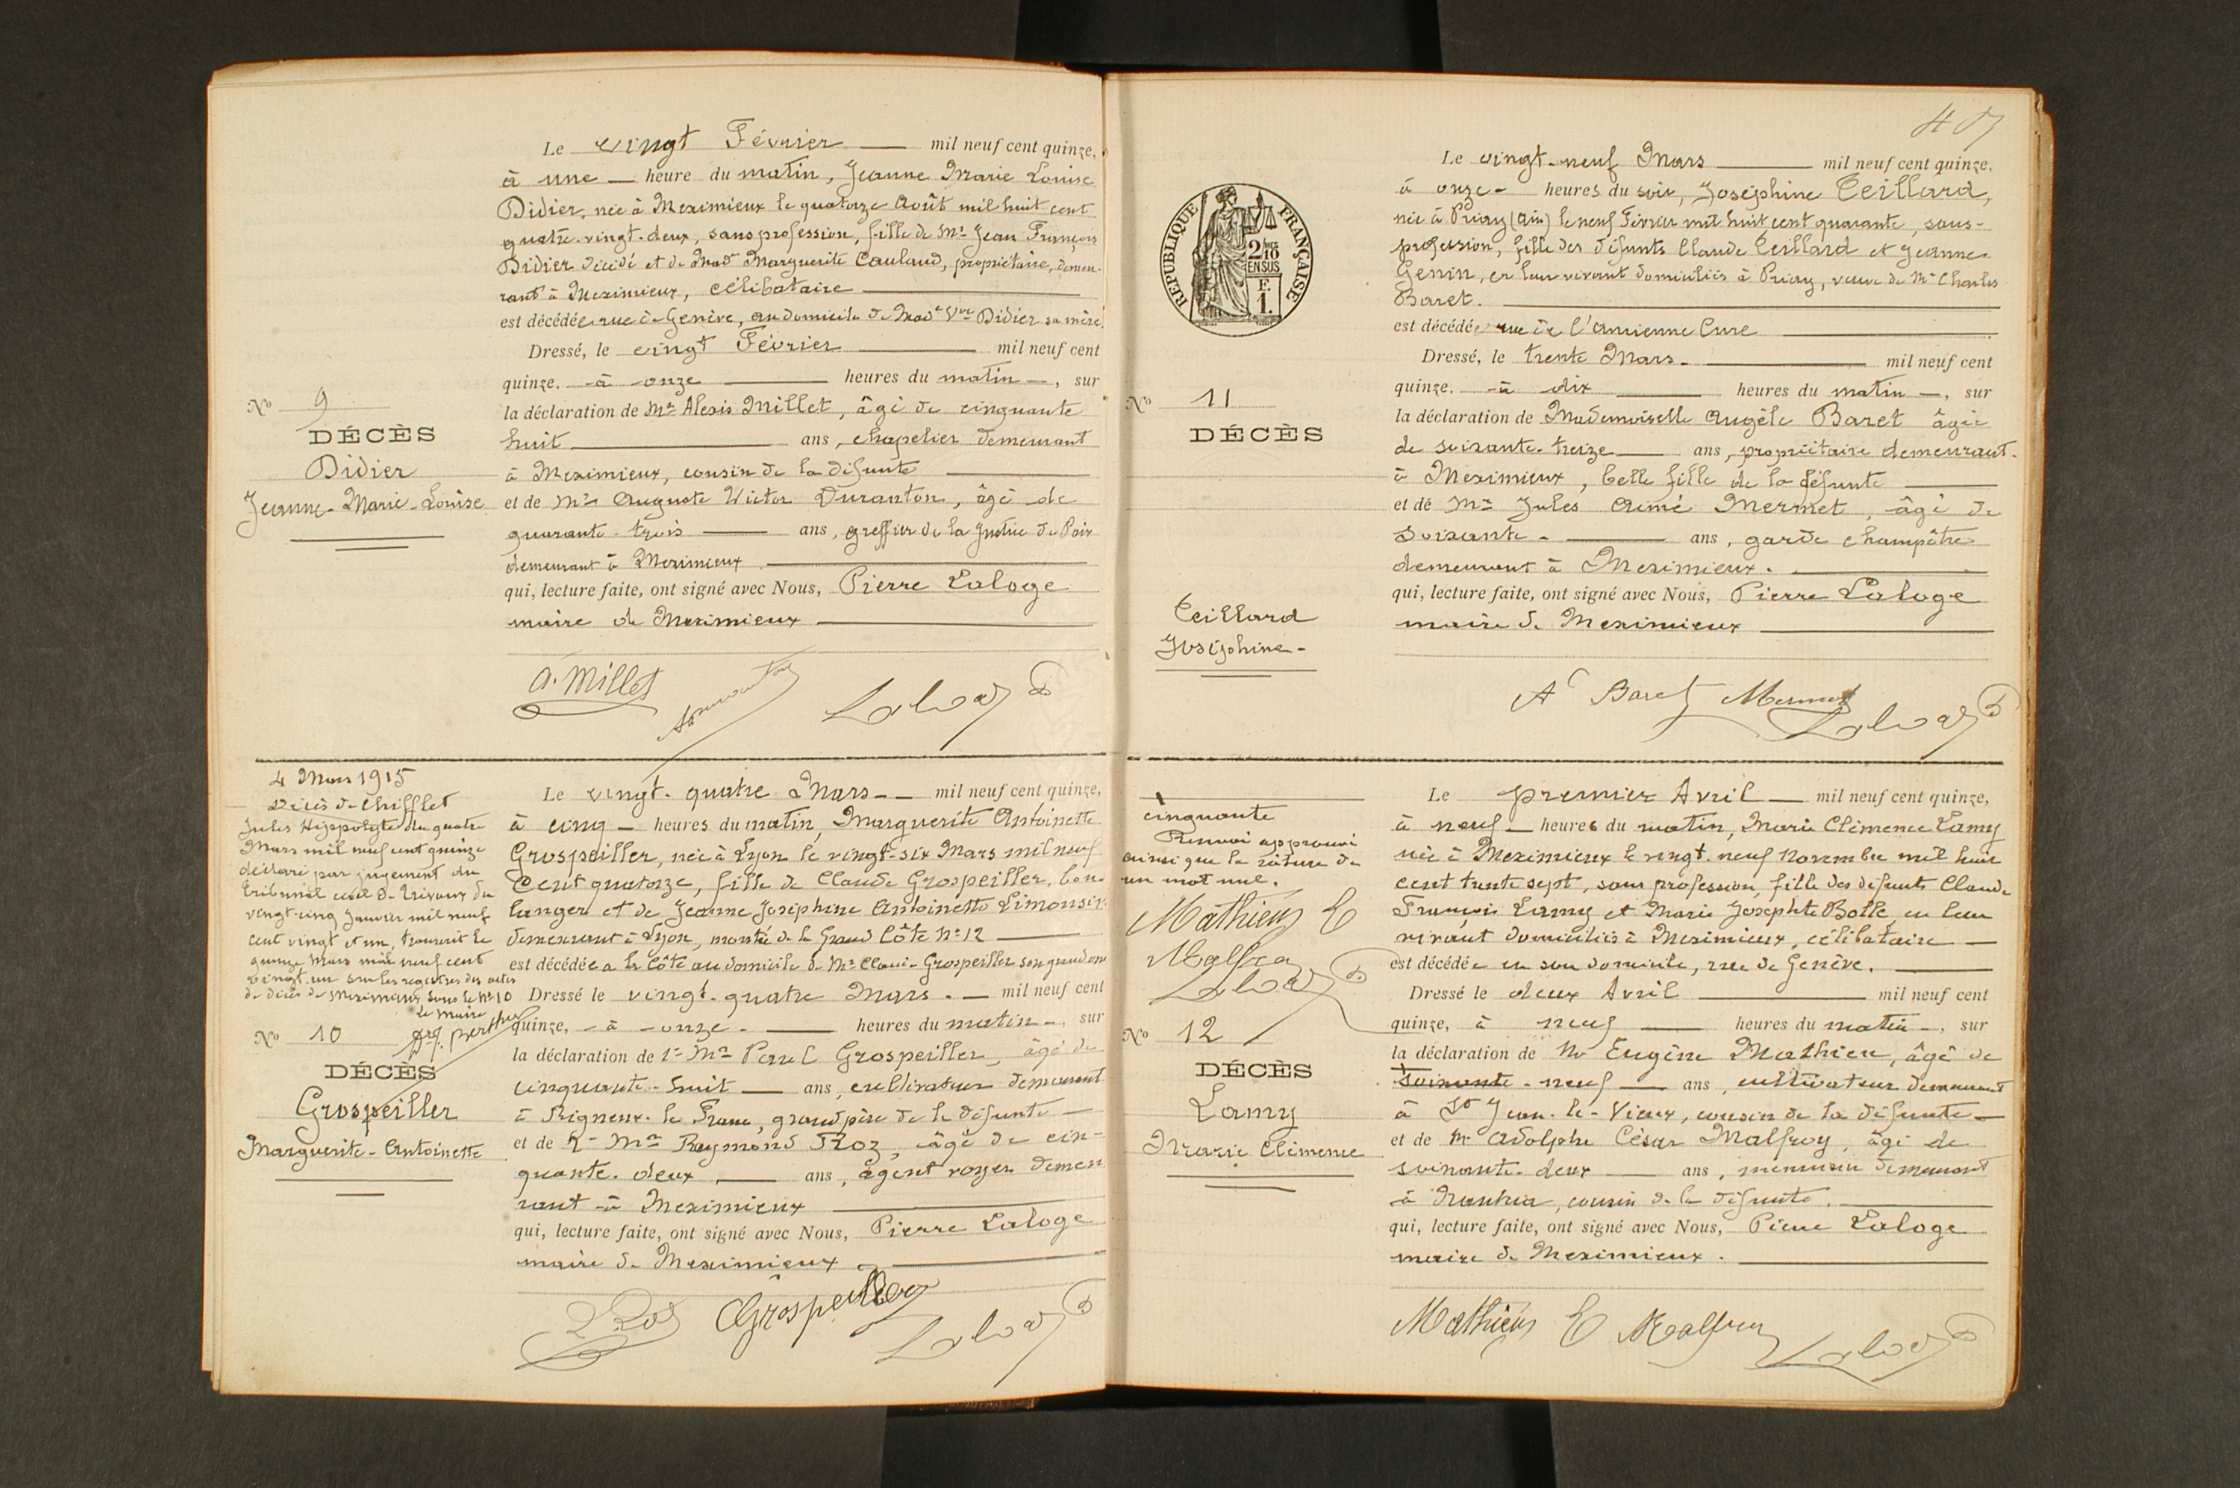 Le vingt Février — mil neuf cent quinze,
à une — heure du matin, Jeanne Marie Louise
Didier, née à Meximieux le quatorze Août mil huit cent
quatre-vingt-deux, sans profession, fille de Mr Jean François
Didier décédé et de Made Marguerite Caulaud, propriétaire, demeu-
rant à Meximieux, célibataire —
est décédée rue de Genève, au domicile de Made Vve Didier sa mère.
Dressé, le vingt Février — mil neuf cent
quinze. à onze — heures du matin —, sur
No 9
la déclaration de Mr Alexis Millet, âgé de cinquante
DÉCÈS
huit — ans, chapelier demeurant
Didier
à Meximieux, cousin de la défunte —
Jeanne-Marie-Louise
et de Mr Auguste Victor Duranton, âgé de
quarante-trois — ans, greffier de la Justice de Paix
demeurant à Meximieux. —
qui, lecture faite, ont signé avec Nous, Pierre Laloge
maire de Meximieux —
A. Millet
4 Mars 1915
Décès de Chifflet
Jules Hippolyte du quatre
Mars mil neuf cent quinze
déclaré par jugement du
Tribunal civil de Trévoux du
vingt-cinq Janvier mil neuf
cent vingt et un, transcrit le
quinze Mars mil neuf cent
vingt-un sur les registres des actes
de décès de Meximieux sous le No 10
Le Maire
No 10
DÉCÈS
Grospeiller
Marguerite-Antoinette
Le vingt-quatre Mars — mil neuf cent quinze,
à cinq — heures du matin, Marguerite Antoinette
Grospeiller, née à Lyon le vingt-six Mars mil neuf
cent quatorze, fille de Claude Grospeiller, bou-
langer et de Jeanne Joséphine Antoinette Limousin
demeurant à Lyon, montée de la Grand Côte No 12 —
est décédée a la Côte au domicile de Mr Grospeiller son
Dressé le vingt-quatre Mars. — mil neuf cent
quinze, à onze. — heures du matin —, sur
la déclaration de 1o Mr Paul Grospeiller, âgé de
cinquante-huit — ans, cultivateur demeurant
à Rigneux-le-Franc, grand père de la défunte —
et de 2o Mr Raymond Roz, âgé de cin-
quante-deux — ans, agent voyer demeu
rant à Meximieux —
qui, lecture faite, ont signé avec Nous, Pierre Laloge
maire de Meximieux —
Grospeiller
RÉPUBLIQUE FRANÇAISE
2/10 EN SUS
F. 1.
Le vingt-neuf Mars — mil neuf cent quinze,
à onze — heures du soir, Joséphine Teillard,
née à Priay (Ain) le neuf Février mil huit cent quarante, sans-
profession, fille des défunts Claude Teillard et Jeanne
Genin, en leur vivant domiciliés à Priay, veuve de Mr Charles
Baret. —
est décédée rue de l'Ancienne Cure —
Dressé, le trente Mars. — mil neuf cent
quinze. à dix — heures du matin —, sur
No 11
DÉCÈS
la déclaration de Mademoiselle Angèle Baret âgée
de soixante-treize — ans, propriétaire demeurant
à Meximieux, belle fille de la défunte —
et de Mr Jules Aimé Mermet, âgé de
soixante — ans, garde champêtre
demeurant à Meximieux. —
qui, lecture faite, ont signé avec Nous, Pierre Laloge
Teillard
maire de Meximieux —
Joséphine-
A Baret Mermet
cinquante
Renvoi approuvé
ainsi que la rature de
un mot nul.
Mathieu E
Malfroy
No 12
DÉCÈS
Lamy
Marie Clémence
Le premier Avril — mil neuf cent quinze,
à neuf — heures du matin, Marie Clémence Lamy
née à Meximieux le vingt-neuf Novembre mil huit
cent trente sept, sans profession, fille des défunts Claude
François Lamy et Marie Josephte Bolle, en leur
vivant domiciliés à Meximieux, célibataire —
est décédée en son domicile, rue de Genève. —
Dressé le deux Avril — mil neuf cent
quinze, à neuf — heures du matin —, sur
la déclaration de Mr Eugène Mathieu, âgé de
soixante-neuf — ans, cultivateur demeurant
à St Jean-le-Vieux, cousin de la défunte —
et de Mr Adolphe César Malfroy, âgé de
soixante-deux — ans, menuisier demeurant
à, cousin de la défunte. —
qui, lecture faite, ont signé avec Nous, Pierre Laloge
maire de Meximieux. —
Mathieu E Malfroy